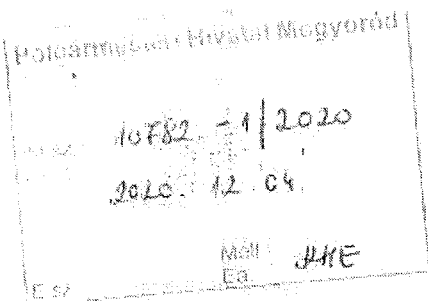 Polgármesteri Hivatal Mogyoród
10782 -1/2020
2020. 12 04.
Mell
Ea.
E sz